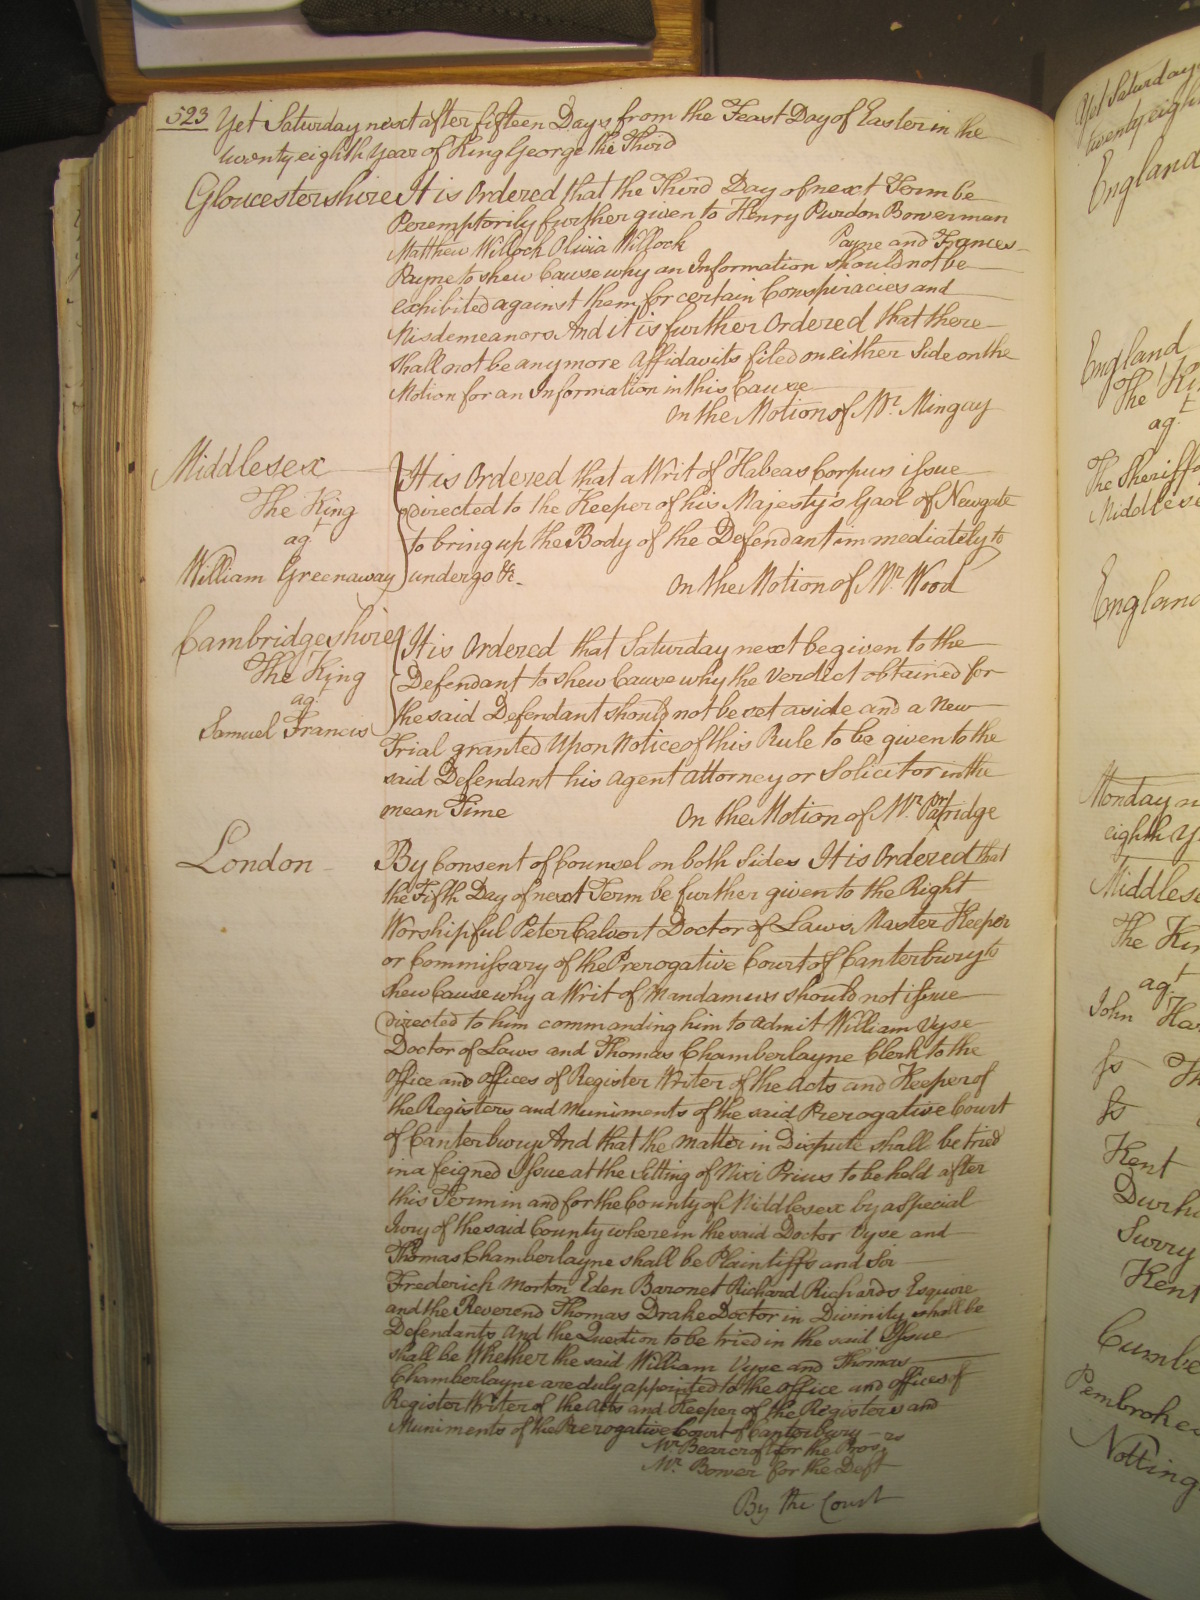 523 Yet Saturday next after fifteen Days from the Feast Day of Easter in the
twenty eighth Year of King George the Third
Gloucestershire It is Ordered that the Third Day of next Term be
Peremptorily further given to Henry Purdon Bowerman
Matthew Willock Olivia Willock Payne and Frances
Payne to shew Cause why an Information should not be
exhibited against them for certain Conspiracies and
Misdemeanors And it is further Ordered that there
shall not be any more Affidavits filed on either Side on the
Motion for an Information in this Cause
On the Motion of Mr. Mingay
Middlesex
The King
agt
William Greenaway
It is Ordered that a Writ of Habeas Corpus issue
directed to the Keeper of his Majesty's Gaol of Newgate
to bring up the Body of the Defendant immediately to
undergo &c.
On the Motion of Mr. Wood
Cambridgeshire
The King
agt
Samuel Francis
It is Ordered that Saturday next be given to the
Defendant to shew Cause why the Verdict obtained for
the said Defendant should not be set aside and a New
Trial granted Upon Notice of this Rule to be given to the
said Defendant his Agent Attorney or Solicitor in the
mean Time
On the Motion of Mr. Partridge
London
By Consent of Counsel on both Sides It is Ordered that
the Fifth Day of next Term be further given to the Right
Worshipful Peter Calvert Doctor of Laws, Master Keeper
or Commissary of the Prerogative Court of Canterbury to
shew Cause why a Writ of Mandamus should not issue
directed to him commanding him to admit William Vyse
Doctor of Laws and Thomas Chamberlayne Clerk to the
Office and Offices of Register Writer of the Acts and Keeper of
the Registers and Muniments of the said Prerogative Court
of Canterbury And that the matter in Dispute shall be tried
in a feigned Issue at the Sitting of Nisi Prius to be held after
this Term in and for the County of Middlesex by a special
Jury of the said County wherein the said Doctor Vyse and
Thomas Chamberlayne shall be Plaintiffs and Sir
Frederich Morton Eden Baronet Richard Richards Esquire
and the Reverend Thomas Drake Doctor in Divinity shall be
Defendants And the Question to be tried in the said Issue
shall be Whether the said William Vyse and Thomas
Chamberlayne are duly appointed to the Office and Offices of
Register Writer of the Acts and Keeper of the Registers and
Muniments of the Prerogative Court of Canterbury
Mr. Bearcroft for the Pros
Mr. Bower for the Deft
By the Court
Yet Saturday
twenty eigh
England
England
The Ki
agt
The Sheriff
Middlese
England
Monday n
eighth Y
Middlese
The Kin
agt
John Har
Kent
Durh
Surry
Kent
Cumbe
Pembroke
Notting